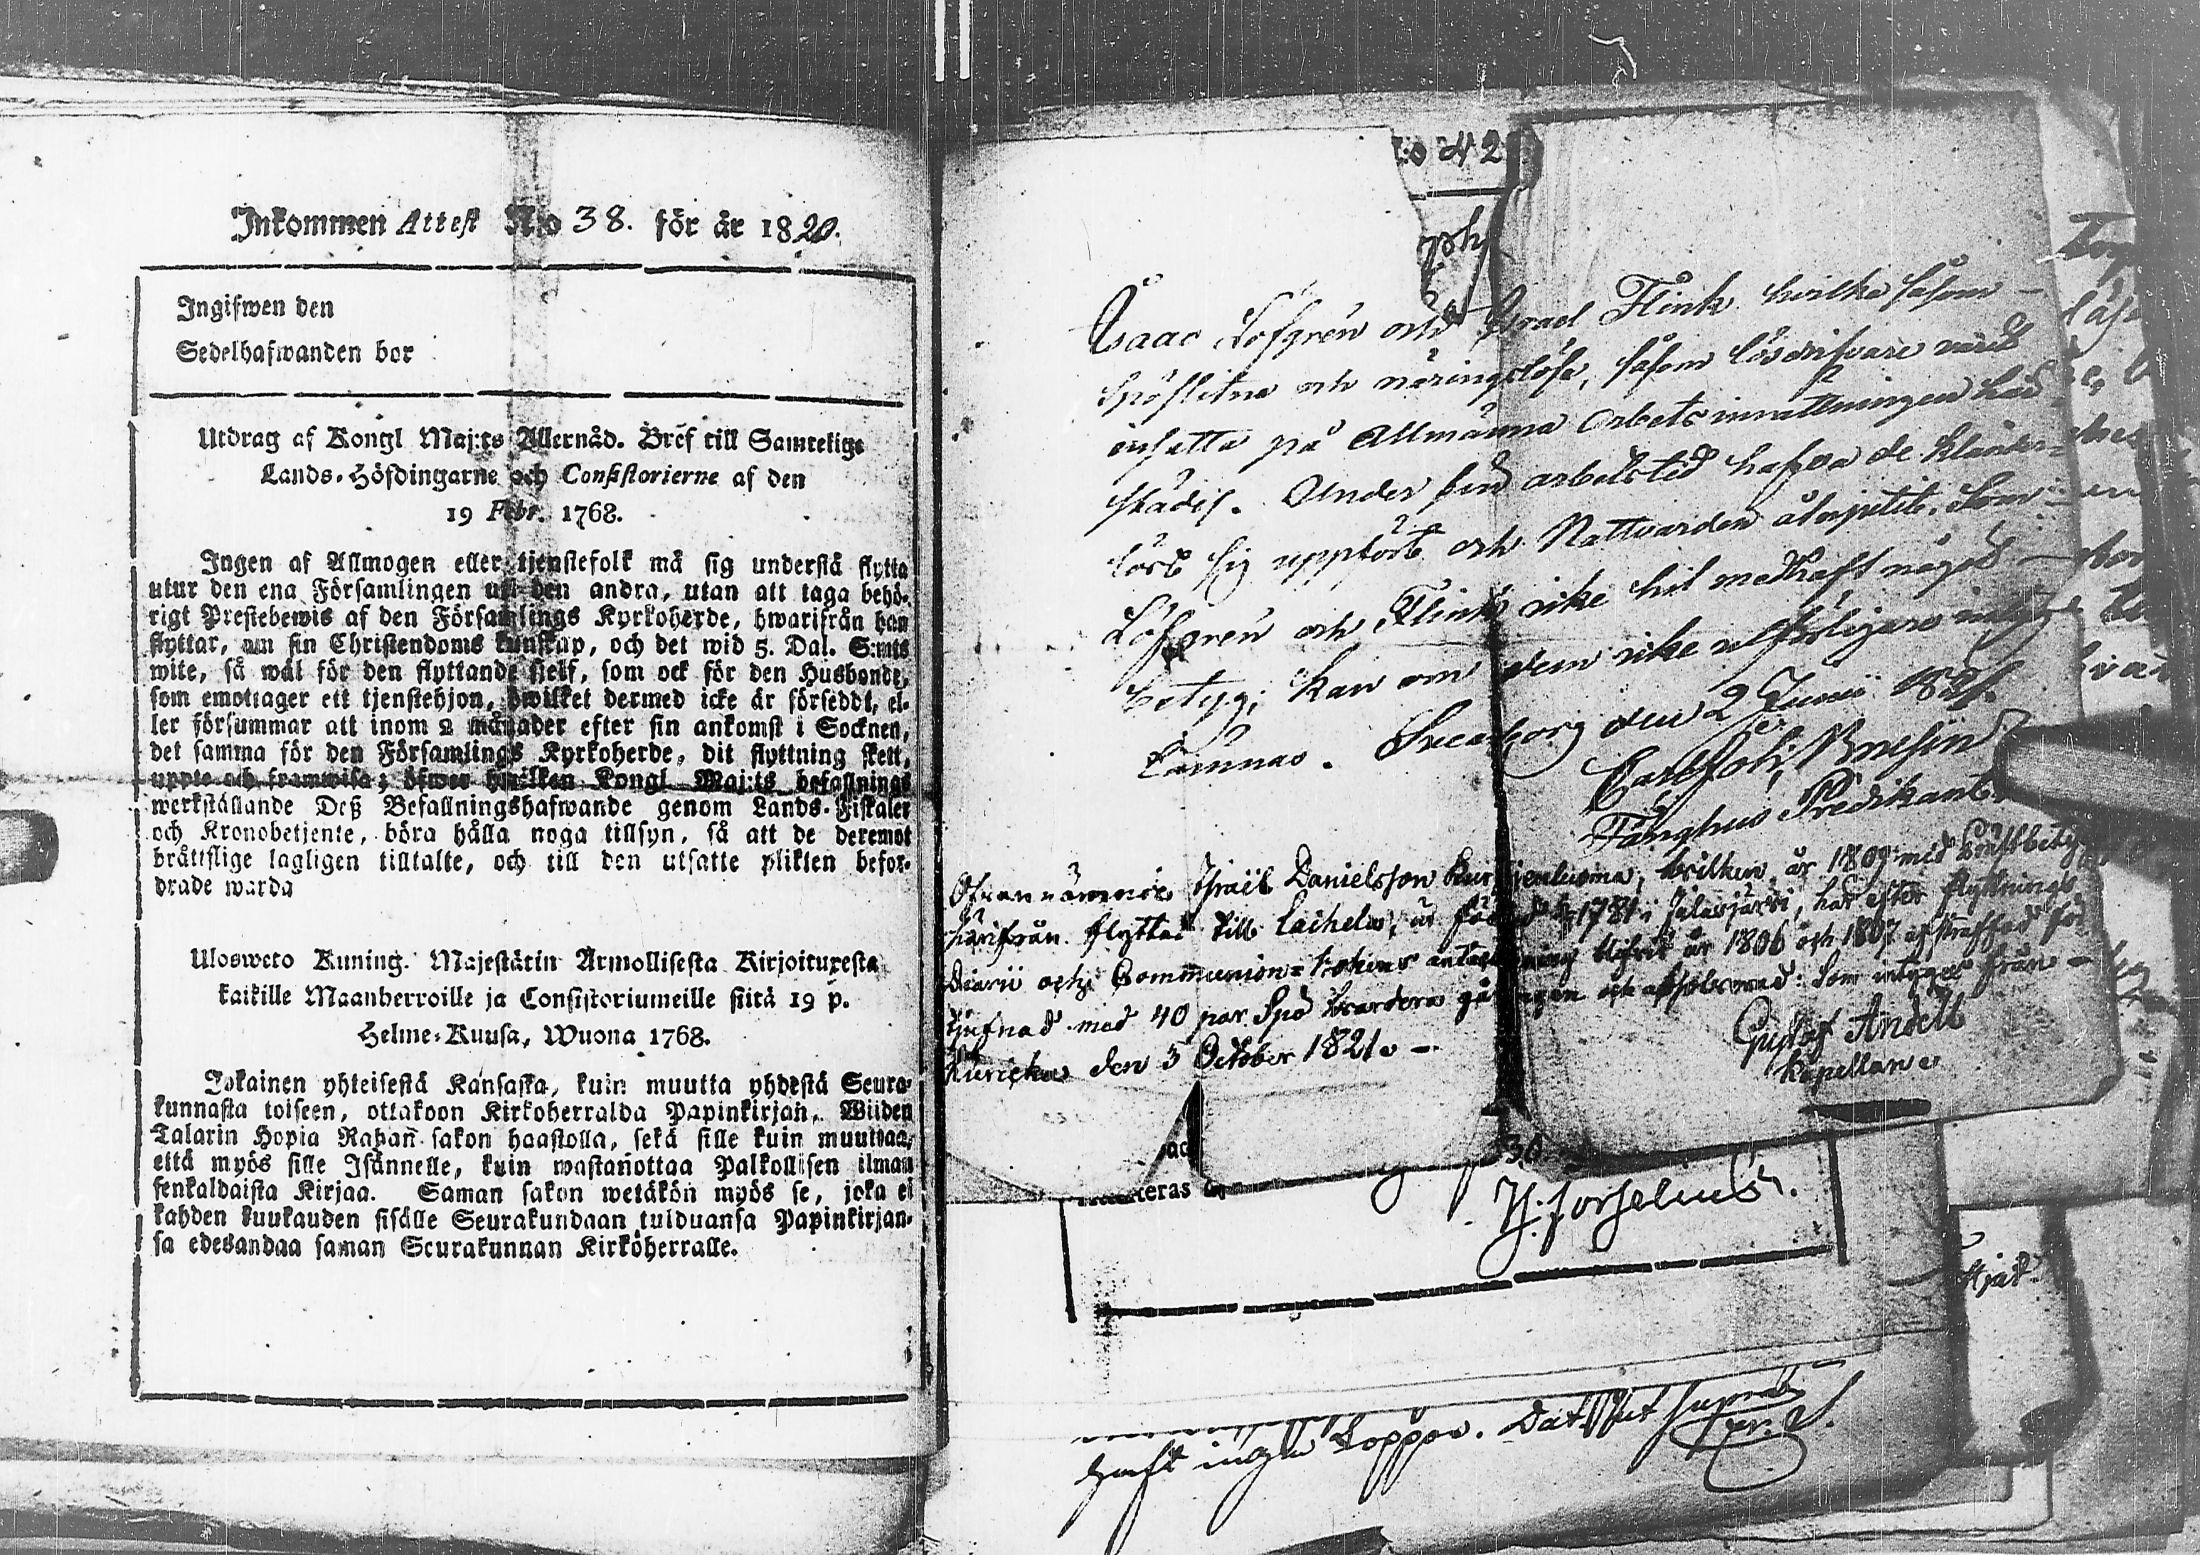 Inkommen Attest N:o 38. för år 1820.
Ingifwen den
Sedelhafwanden bor
Utdrag af Kongl Maj:ts Allernåd. Bref till Samtelige
Lands-Höfdingarne och Consistorierne af den
19 Febr. 1768.
Ingen af Allmogen eller tjenstefolk må sig understå flytta
utur den ena Församlingen uti den andra, utan att taga behö-
rigt Prestebewis af den Församlings Kyrkoherde, hwarifrån han
flyttar, om sin Christendoms kunskap, och det wid 5. Dal. S:mts
wite, så wäl för den flyttande sjelf, som ock för den Husbonde,
som emottager ett tjenstehjon, hwilket dermed icke är försedt, el-
ler försummar att inom 2 månader efter sin ankomst i Socknen,
det samma för den Församlings Kyrkoherde, dit flyttning skett,
uppte och framwisa; öfwer hwilken Kongl Maj:ts befallnings
werkställande Deß Befallningshafwande genom Lands-Fiskaler
och Kronobetjente, böra hålla noga tillsyn, så att de deremot
bråttslige lagligen tilltalte, och till den utsatte plikten befor-
drade warda
Ulosweto Kuning. Majestätin Armollisesta Kirjoituxesta
kaikille Maanherroille ja Consistoriumeille siitä 19 p.
Helme-Kuusa, Wuona 1768.
Jokainen yhteisestä Kansasta, kuin muutta yhdestä Seura-
kunnasta toiseen, ottakoon Kirkoherralda Papinkirjan, Wiiden
Talarin Hopia Rahan̄ sakon haastolla, sekä sille kuin muuttaa,
että myös sille Isännelle, kuin wastan̄ottaa Palkollisen ilman
senkaldaista Kirjaa. Saman sakon wetäkön myös se, joka ei
kahden kuukauden sisälle Seurakundaan tulduansa Papinkirjan-
sa edesandaa saman Seurakunnan Kirköherralle.
:o 42
Isaac Löfgrén och Israel Flink hvilka såsom
spöslitne och näringslöse, såsom lösdrifvare varit
insatta på Allmänna Arbets inrättningen här-
städes. Under sin arbetstid hafva de klander-
löst sig uppfört och Nattvarden åtnjutit. Som
Löfgrén och Flink icke hit medhaft något
betyg; kan om dem icke utförligare intyg
lämnas. Sveaborg den 2 Junii 1821.
Carl Joh:
Fånghus Predikant.
Ofvannämnde Israël Danielsson, hvilken år 1809 med
härifrån flyttat till Laihela, är född 1781 i Jalasjärvi, har efter flyttnings
Diarii och Communion-bokens anteckning blifvit år 1806 och 1807 afstraffad för
tjufnad med 40 par Spö hvardera gången och absolverad: Som intygas från
Kuricka den 3 October 1821.
Gustaf Andell
Kapellan
30
teras
H: Forselius.
Haft inga Koppor. Dat ut supra
stjät